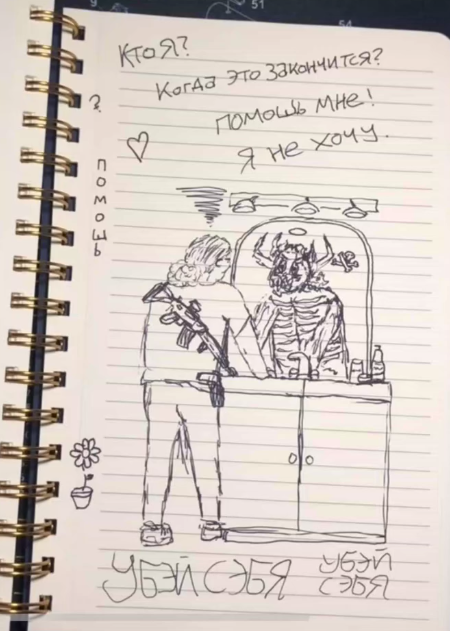 51
54
КТО Я?
КОГДА ЭТО ЗАКОНЧИТСЯ?
ПОМОШЬ МНЕ!
Я НЕ ХОЧУ.
?
ПОМОШЬ
УБЭЙ СЭБЯ
УБЭЙ
СЭБЯ